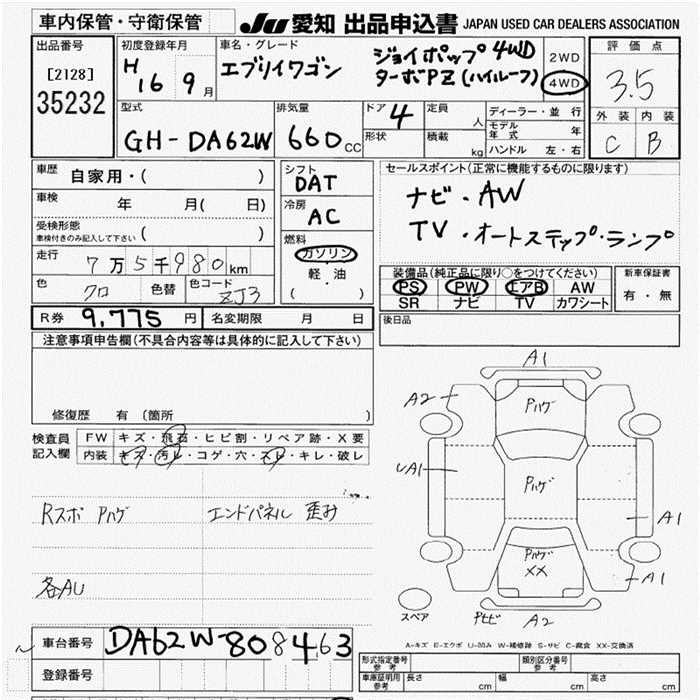 車内保管・守衛保管
JU 愛知 出品申込書 JAPAN USED CAR DEALERS ASSOCIATION
出品番号
[2128]
35232
初度登録年月
H 16 9月
車名・グレード
エブリイワゴン
ジョイポップ 4WD
ターボPZ(ハイルーフ)
2WD
4WD
評価点
3.5
外装 内装
C B
型式
GH-DA62W
排気量
660cc
ドア 4
形状
定員 人
積載 kg
ディーラー・並行
モデル年式 年
ハンドル 左・右
車歴 自家用・( )
車検 年 月( 日)
受検形態
車検付きのみ記入して下さい ( )
走行 7万5千980km
色 クロ 色替 色コード ZJ3
シフト
DAT
冷房
AC
燃料
ガソリン
・
軽油
( )
セールスポイント(正常に機能するものに限ります)
ナビ・AW
TV・オートステップ・ランプ
装備品(純正品に限り○をつけてください)
PS PW エアB AW
SR ナビ TV カワシート
新車保証書
有・無
R券 9,775円 名変期限 月 日
後日品
注意事項申告欄(不具合内容等は具体的に記入して下さい)
修復歴 有 (箇所 )
検査員記入欄
FW キズ・飛石・ヒビ割・リペア跡・X要
内装 キズ・汚レ・コゲ・穴・スレ・キレ・破レ
Rスポ Pハゲ
エンドパネル 歪み
各AU
A1
A2
Pハゲ
A1
Pハゲ
A1
Pハゲ
XX
A1
スペア
A2
A-キズ E-エクボ U-凹み W-補修跡 S-サビ C-腐食 XX-交換済
車台番号 DA62W-808463
登録番号
型式指定番号 参考
類別区分番号 参考
車庫証明用 参考
長さ cm 幅 cm 高さ cm